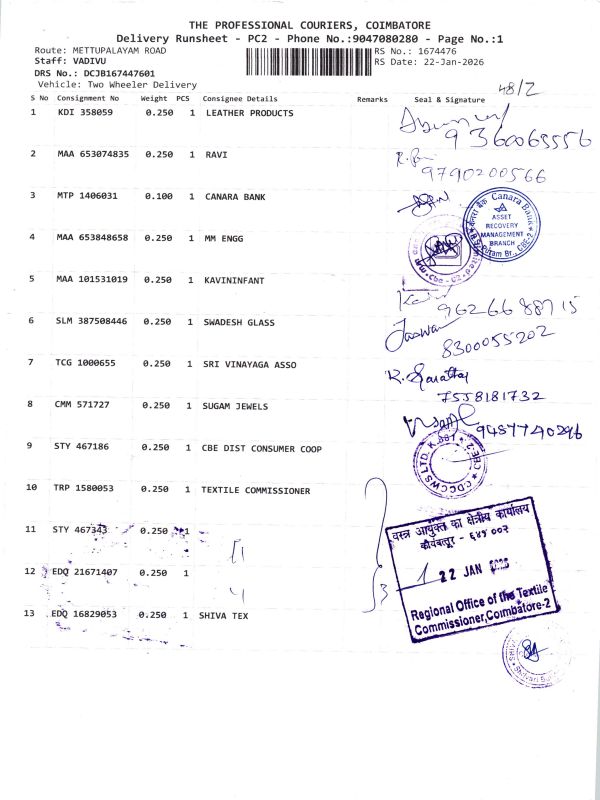 THE PROFESSIONAL COURIERS, COIMBATORE
Delivery Runsheet - PC2 - Phone No.:9047080280 - Page No.:1
Route: METTUPALAYAM ROAD RS No.: 1674476
Staff: VADIVU RS Date: 22-Jan-2026
DRS No.: DCJB167447601
Vehicle: Two Wheeler Delivery
48/2
S No Consignment No Weight PCS Consignee Details Remarks Seal & Signature
1 KDI 358059 0.250 1 LEATHER PRODUCTS
9360065556
2 MAA 653074835 0.250 1 RAVI
9790200566
3 MTP 1406031 0.100 1 CANARA BANK
Canara Bank
ASSET
RECOVERY
MANAGEMENT
BRANCH
4 MAA 653848658 0.250 1 MM ENGG
5 MAA 101531019 0.250 1 KAVININFANT
9626688715
6 SLM 387508446 0.250 1 SWADESH GLASS
8300055202
7 TCG 1000655 0.250 1 SRI VINAYAGA ASSO
K. Sarathy
7558181732
8 CMM 571727 0.250 1 SUGAM JEWELS
9487740296
9 STY 467186 0.250 1 CBE DIST CONSUMER COOP
CDCCWS LTD. K.881 CBE-2
10 TRP 1580053 0.250 1 TEXTILE COMMISSIONER
वस्त्र आयुक्त का क्षेत्रीय कार्यालय
कोयंबत्तूर - ६४१ ००२
11 STY 467343 0.250 1
12 EDQ 21671407 0.250 1
22 JAN
3
Regional Office of the Textile
Commissioner, Coimbatore-2
13 EDQ 16829053 0.250 1 SHIVA TEX